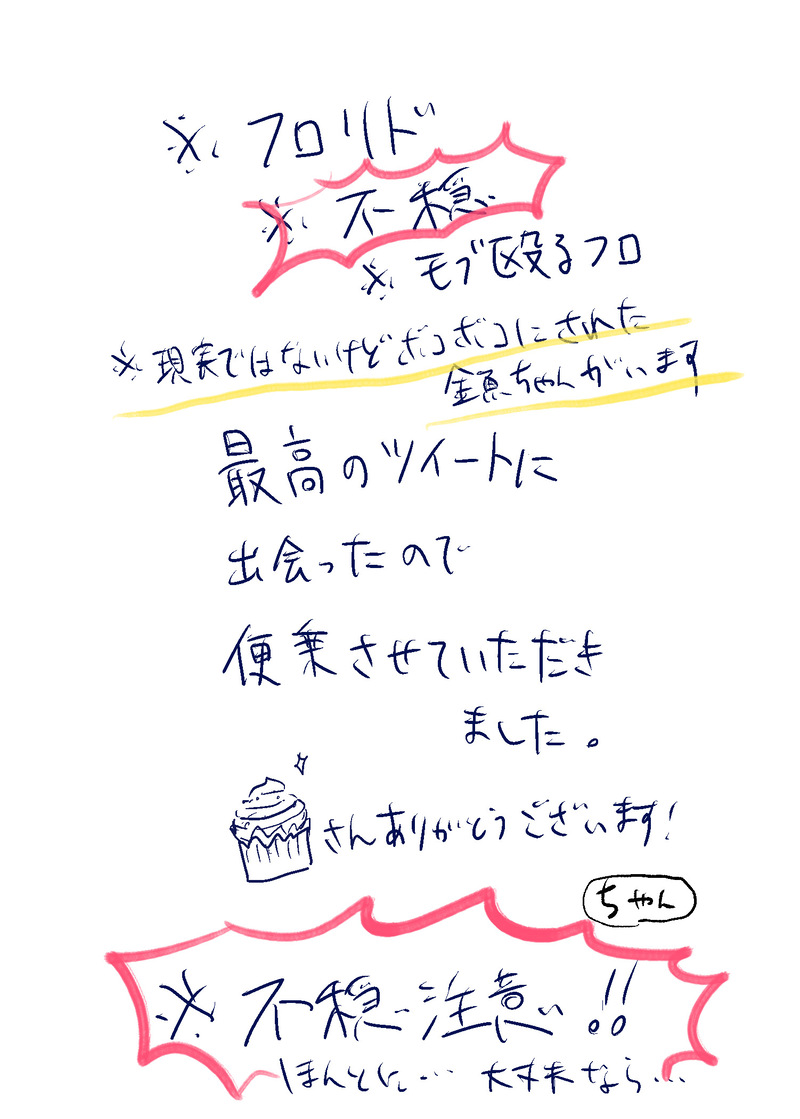 ※フロリド
※不穏
※モブ殴るフロ
※現実ではないけどボコボコにされた
金魚ちゃんがいます
最高のツイートに
出会ったので
便乗させていただき
ました。
さんありがとうございます!
ちゃん
※不穏注意!!
ほんとに… 大丈夫なら…